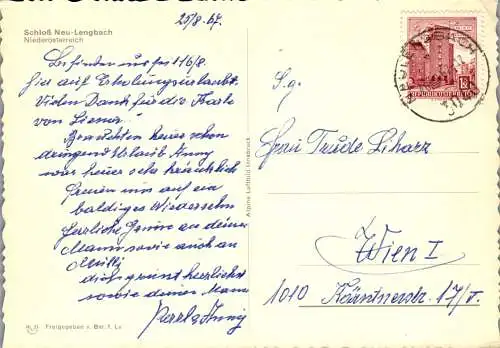 25/8.67.
Schloß Neu-Lengbach
Niederösterreich
befinden uns
hier auf Erholungsurlaub.
Vielen Dank für die Karte
von
Brauchten heuer schon
dringend Urlaub Anny
war heuer sehr kränklich
freuen uns auf ein
baldiges Wiedersehn
herzliche Grüsse an deinen
Mann sowie auch an
Mutti
dich grüsst herzlichst
sowie deinen Mann
Karl + Anny
Freigegeben v. B
Alpine Luftbild Innsbruck
REPUBLIK ÖSTERREICH
S.g.
Frau Trude Liharz
Wien I
1010 Kärntnerstr. 17/I.